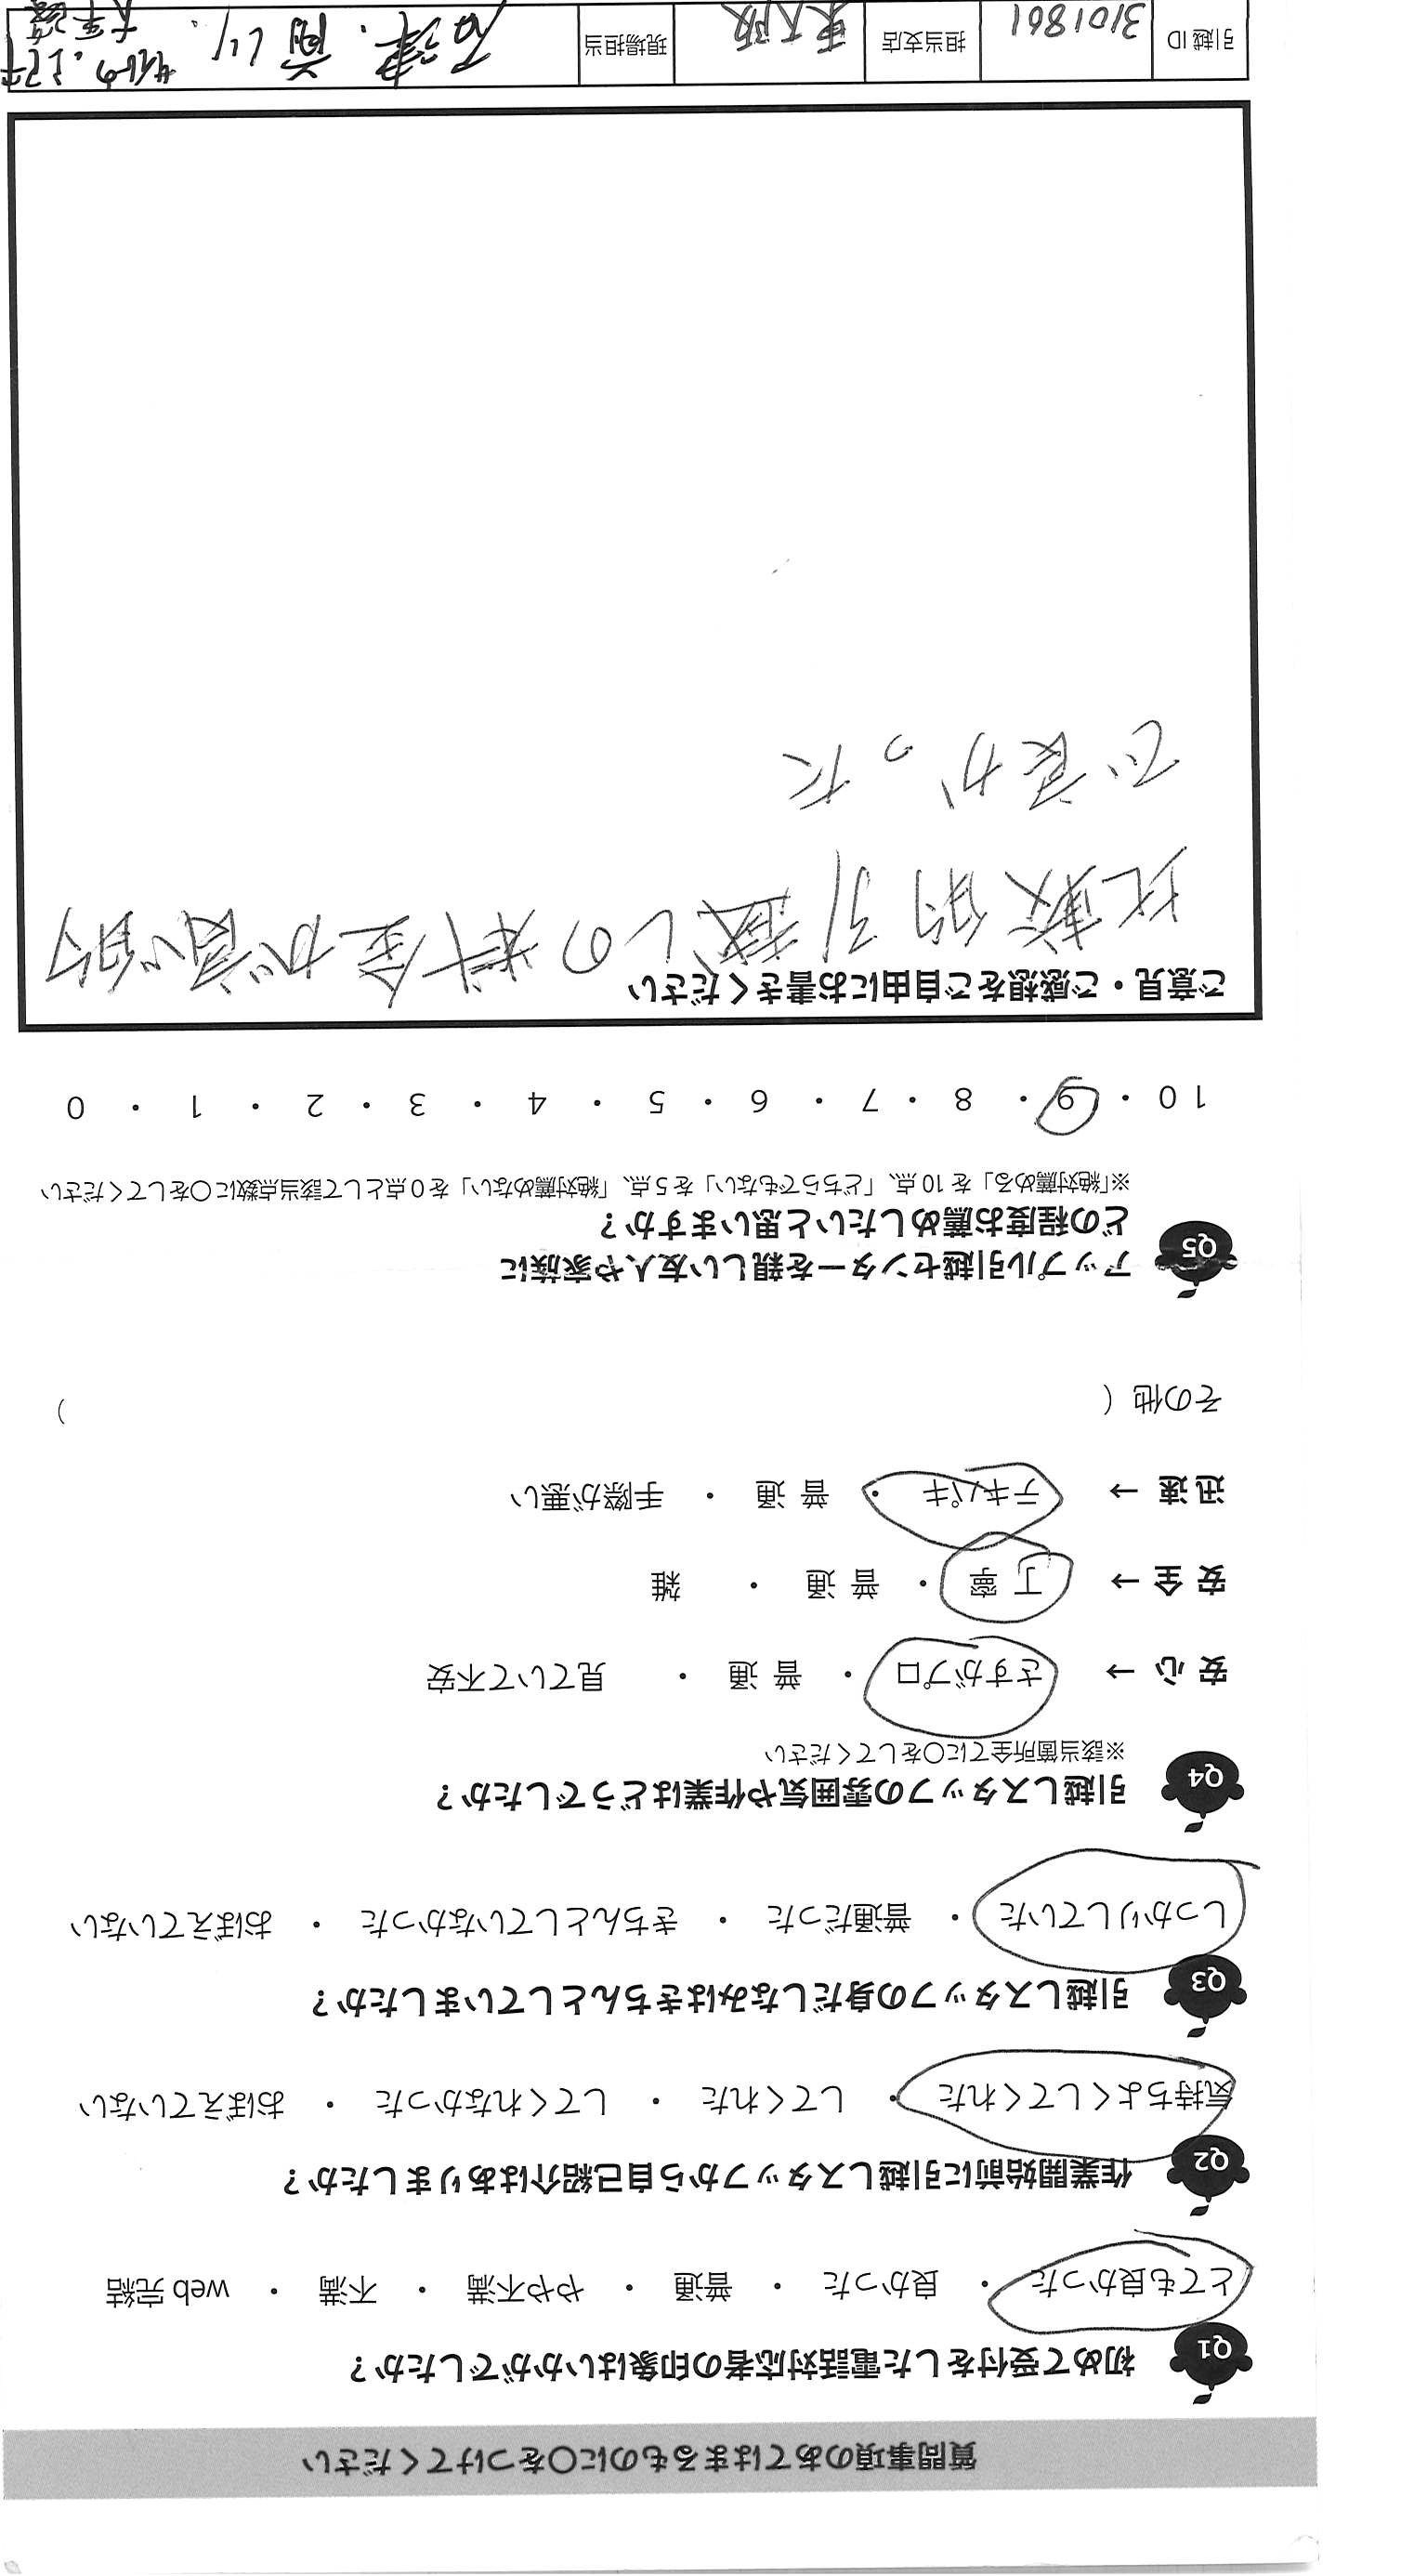 質問事項のあてはまるものに〇をつけてください
Q1 初めて受付をした電話対応者の印象はいかがでしたか？
とても良かった ・ 良かった ・ 普通 ・ やや不満 ・ 不満 ・ web 完結
Q2 作業開始前に引越しスタッフから自己紹介はありましたか？
気持ちよくしてくれた ・ してくれた ・ してくれなかった ・ おぼえていない
Q3 引越しスタッフの身だしなみはきちんとしていましたか？
しっかりしていた ・ 普通だった ・ きちんとしていなかった ・ おぼえていない
Q4 引越しスタッフの雰囲気や作業はどうでしたか？
※該当箇所全てに〇をしてください
安 心 → さすがプロ ・ 普 通 ・ 見ていて不安
安 全 → 丁 寧 ・ 普 通 ・ 雑
迅 速 → テキパキ ・ 普 通 ・ 手際が悪い
その他（ ）
Q5 アップル引越センターを親しい友人や家族に
どの程度お薦めしたいと思いますか？
※「絶対薦める」を 10 点、「どちらでもない」を 5 点、「絶対薦めない」を 0 点として該当点数に〇をしてください
10 ・ 9 ・ 8 ・ 7 ・ 6 ・ 5 ・ 4 ・ 3 ・ 2 ・ 1 ・ 0
ご意見・ご感想をご自由にお書きください
比較的引越しの料金が良心的
で良かった
引越 ID 3101861 担当支店 東大阪 現場担当 石津.